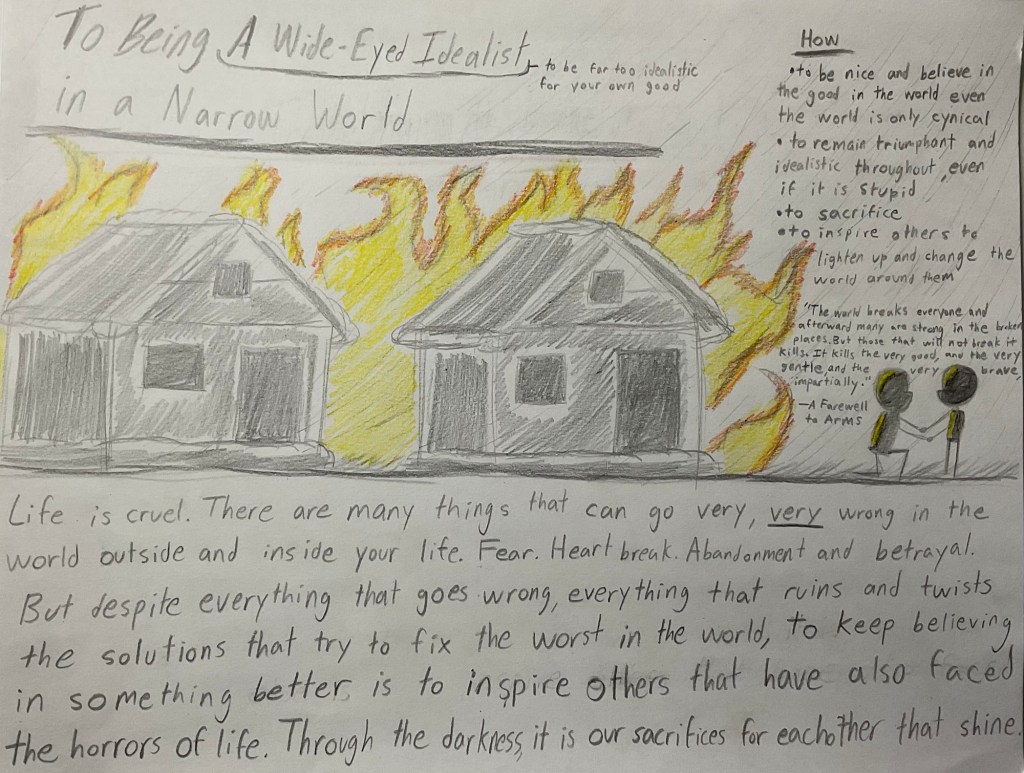 To Being A Wide-Eyed Idealist
in a Narrow World
to be far too idealistic
for your own good
How
• to be nice and believe in
the good in the world even
the world is only cynical
• to remain triumphant and
idealistic throughout, even
if it is stupid
• to sacrifice
• to inspire others to
lighten up and change the
world around them
"The world breaks everyone and
afterward many are strong in the broken
places. But those that will not break it
kills. It kills the very good, and the very
gentle, and the very brave,
impartially."
—A Farewell
to Arms
Life is cruel. There are many things that can go very, very wrong in the
world outside and inside your life. Fear. Heart break. Abandonment and betrayal.
But despite everything that goes wrong, everything that ruins and twists
the solutions that try to fix the worst in the world, to keep believing
in something better, is to inspire others that have also faced
the horrors of life. Through the darkness, it is our sacrifices for eachother that shine.